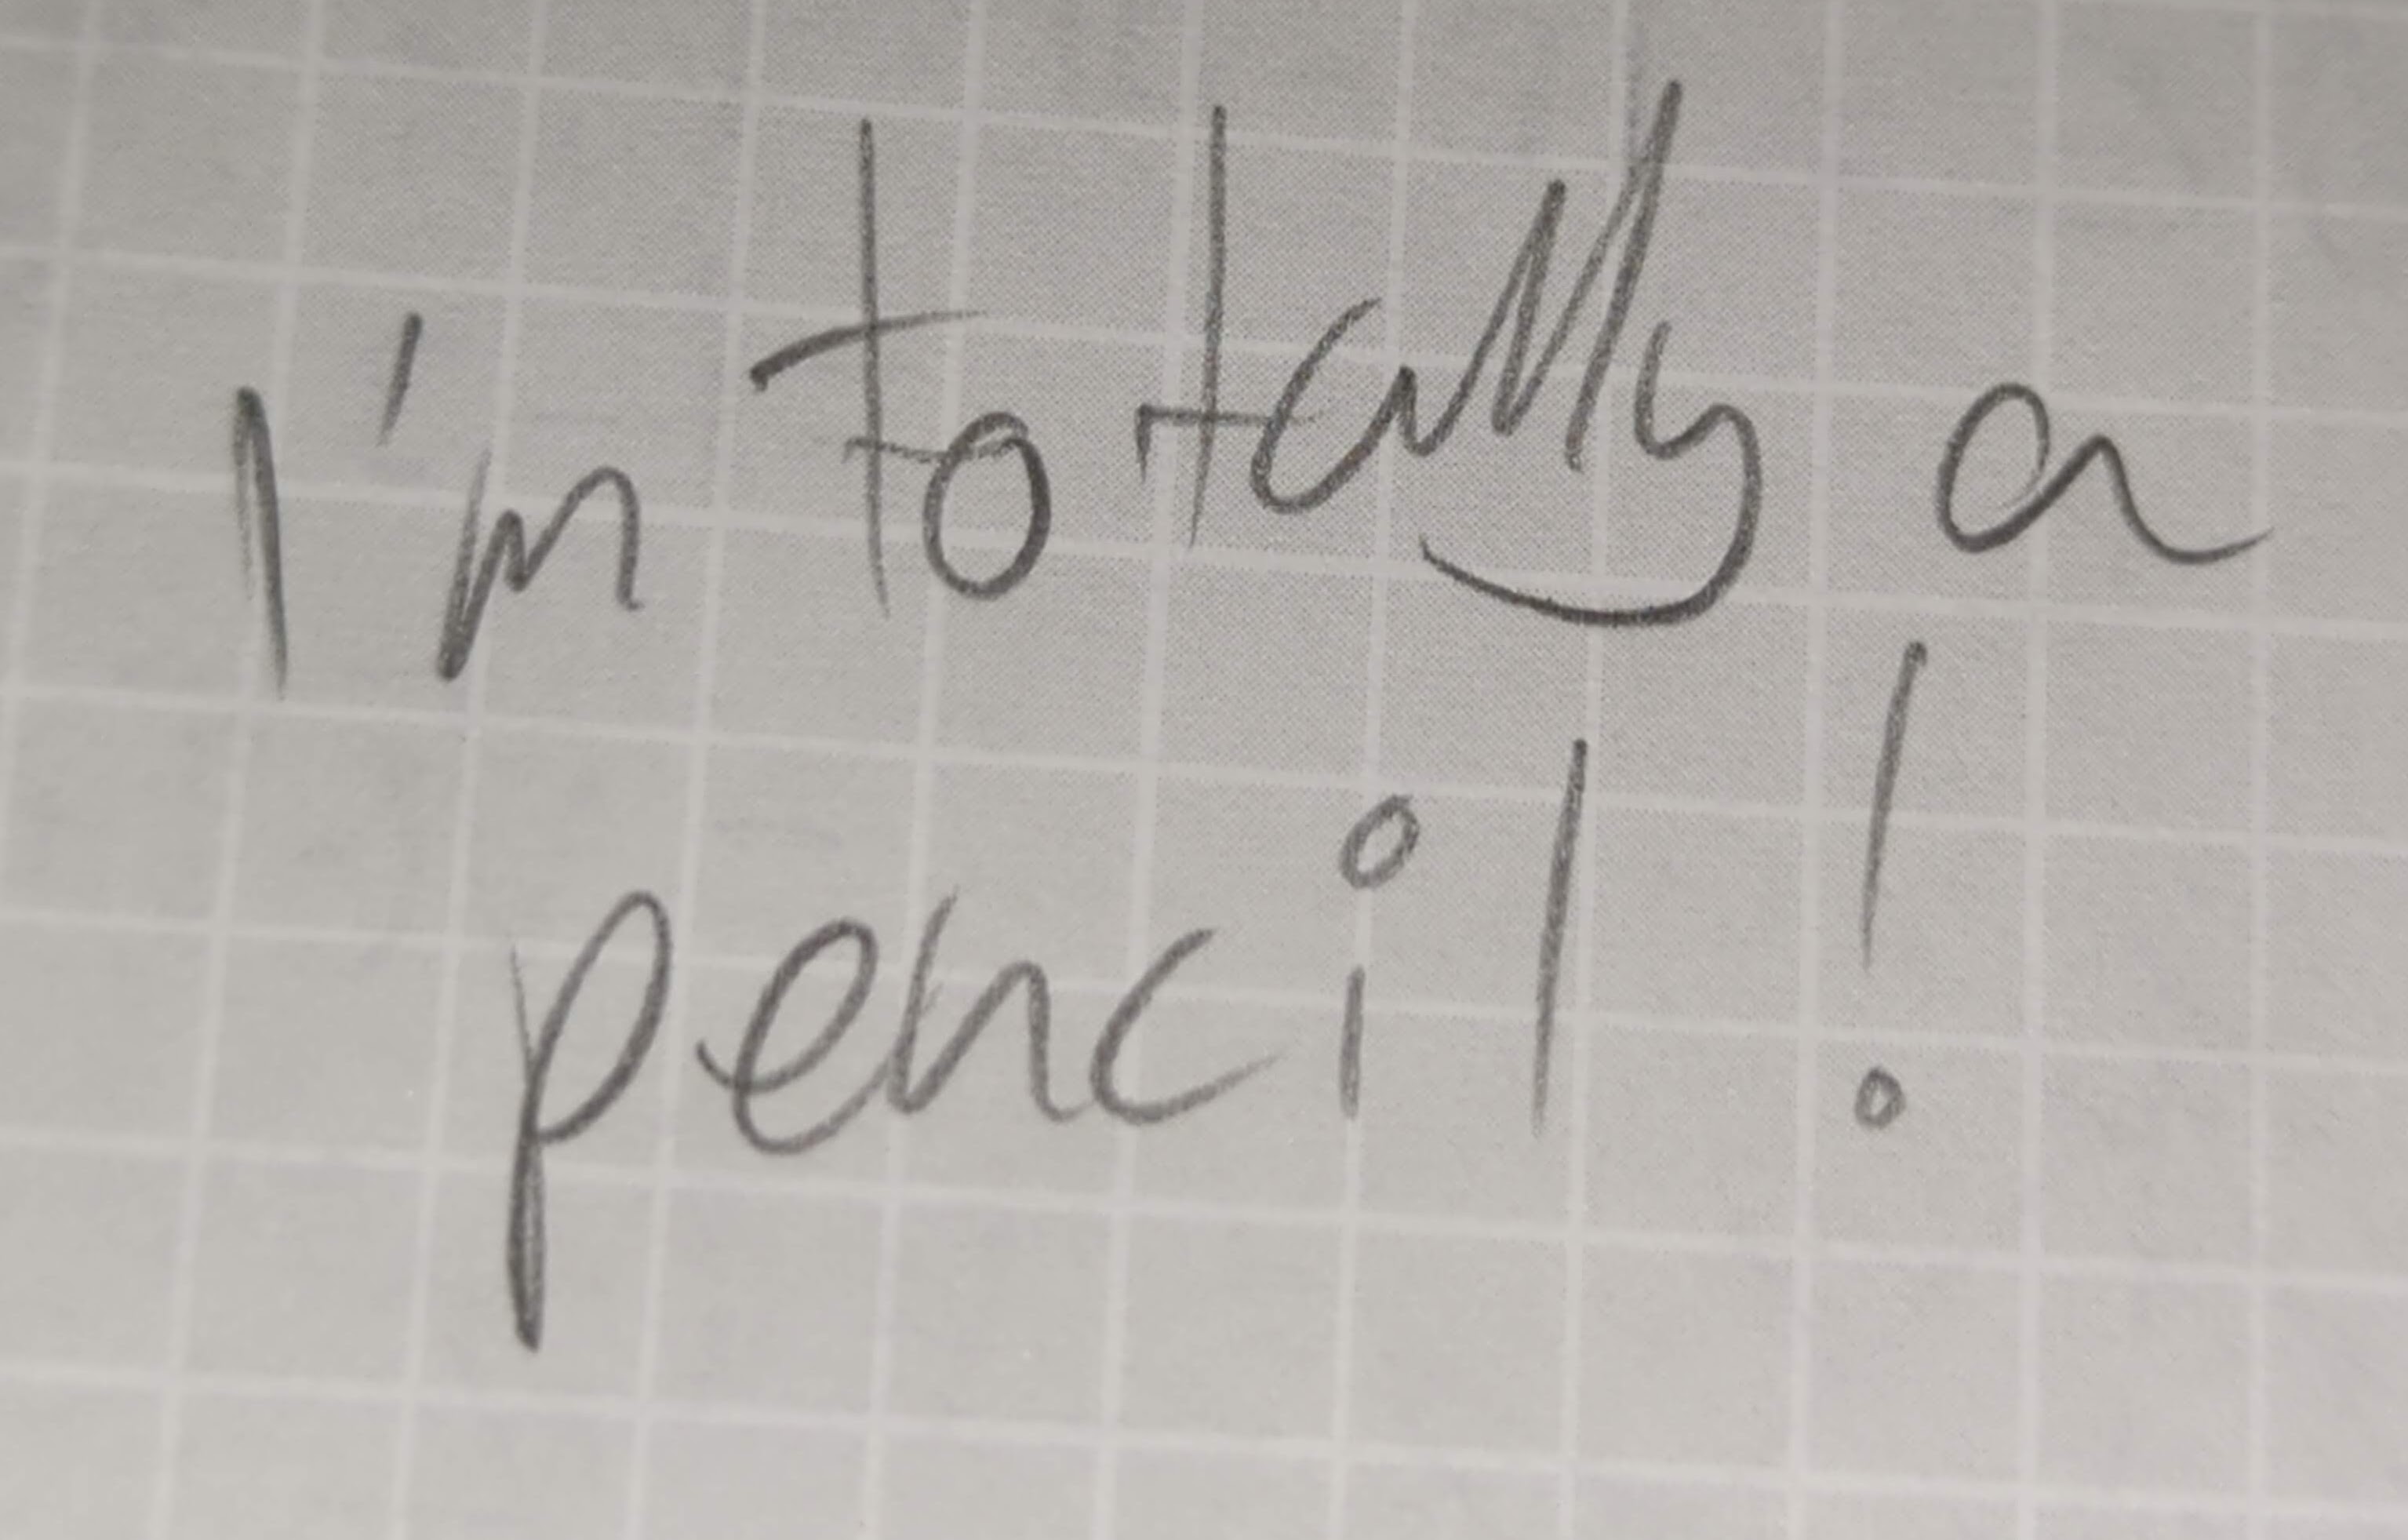 I'm totally a
pencil!